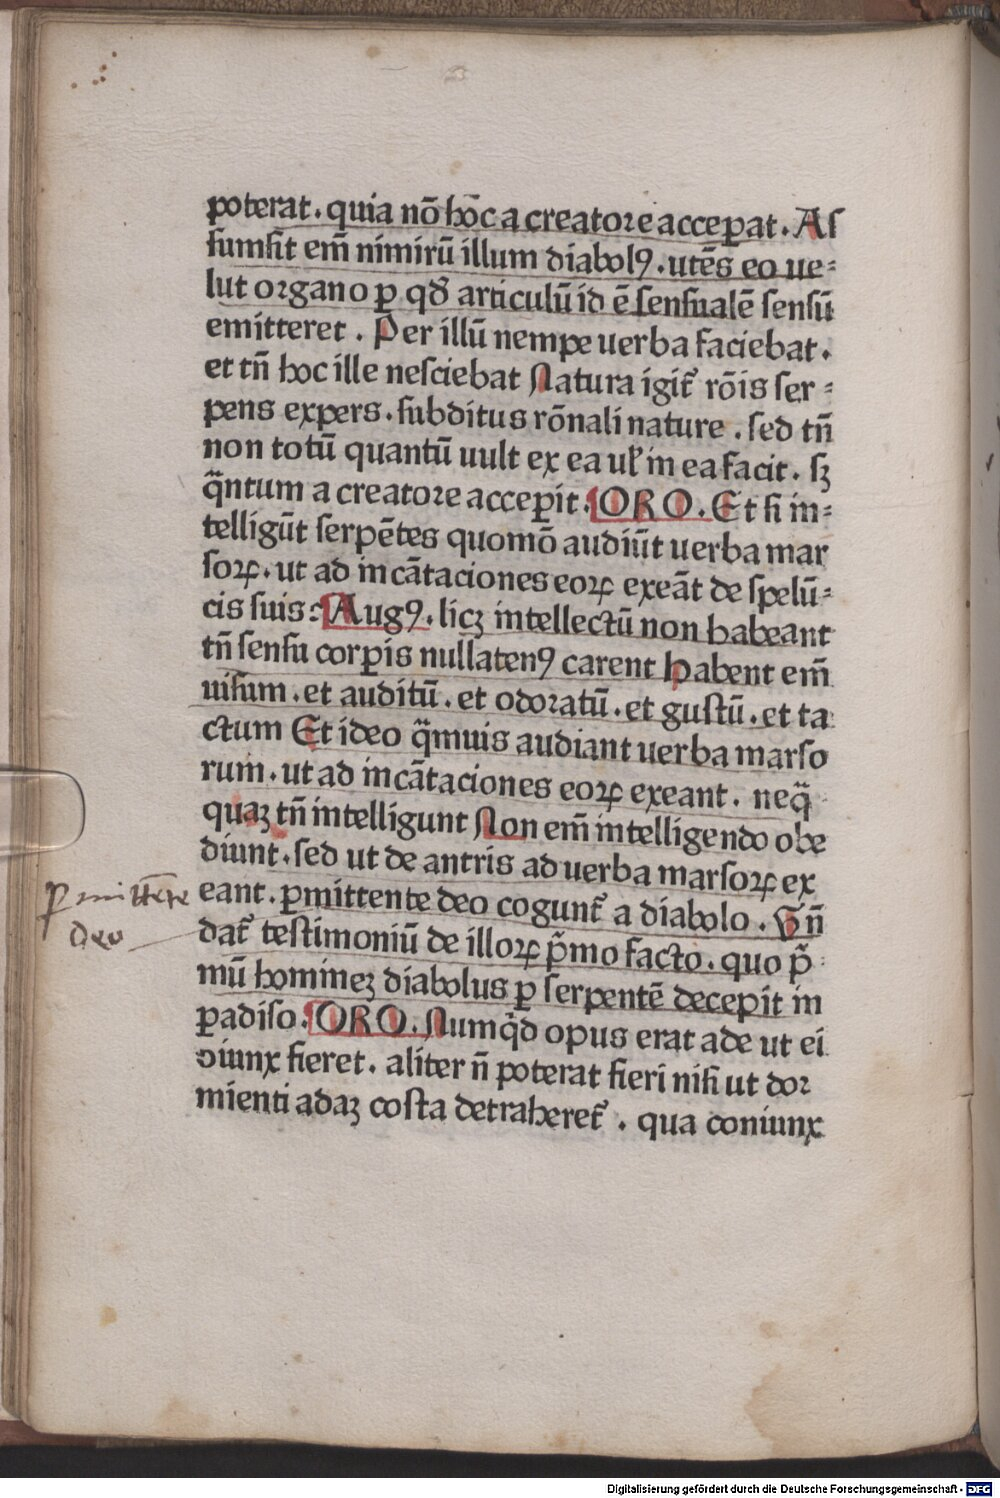 poterat. quia nō hōc a creatore acceꝑat. Aſ
ſumſit em̄ nimirū illum diabolꝰ. utēs eo ue⸗
lut organo ꝑ qđ articulū id ē ſenſualē ſenſū
emitteret. Per illū nempe uerba faciebat.
et tn̄ hoc ille neſciebat Natura igit᷑ rōis ſer⸗
pens expers. ſubditus rōnali nature. ſed tn̄
non totū quantū uult ex ea uł in ea facit. ſꝫ
q̄ntum a creatore accepit. ORO. Et ſi in⸗
telligūt ſerpētes quomō audiūt uerba mar
ſoꝝ. ut ad incātaciones eoꝝ exeāt de ſpelū⸗
cis ſuis: Augꝰ. licꝫ intellectū non habeant
tn̄ ſenſu corꝑis nullatenꝰ carent Habent em̄
uiſum. et auditū. et odoratū. et guſtū. et ta
ctum Et ideo q̄muis audiant uerba marſo
rum. ut ad incātaciones eoꝝ exeant. neq̄
quaꝫ tn̄ intelligunt Non em̄ intelligendo obe
diunt. ſed ut de antris ad uerba marſoꝝ ex
eant. ꝑmittente deo cogunt᷑ a diabolo. Vn̄
dat᷑ teſtimoniū de illoꝝ p̄mo facto. quo p̄
mū homineꝫ diabolus ꝑ ſerpentē decepit in
ꝑadiſo. ORO. Numq̄d opus erat ade ut ei
ↄiunx fieret. aliter n̄ poterat fieri niſi ut dor
mienti adaꝫ coſta detraheret᷑. qua coniunx
ꝑmittēte
deo
Digitalisierung gefördert durch die Deutsche Forschungsgemeinschaft - DFG